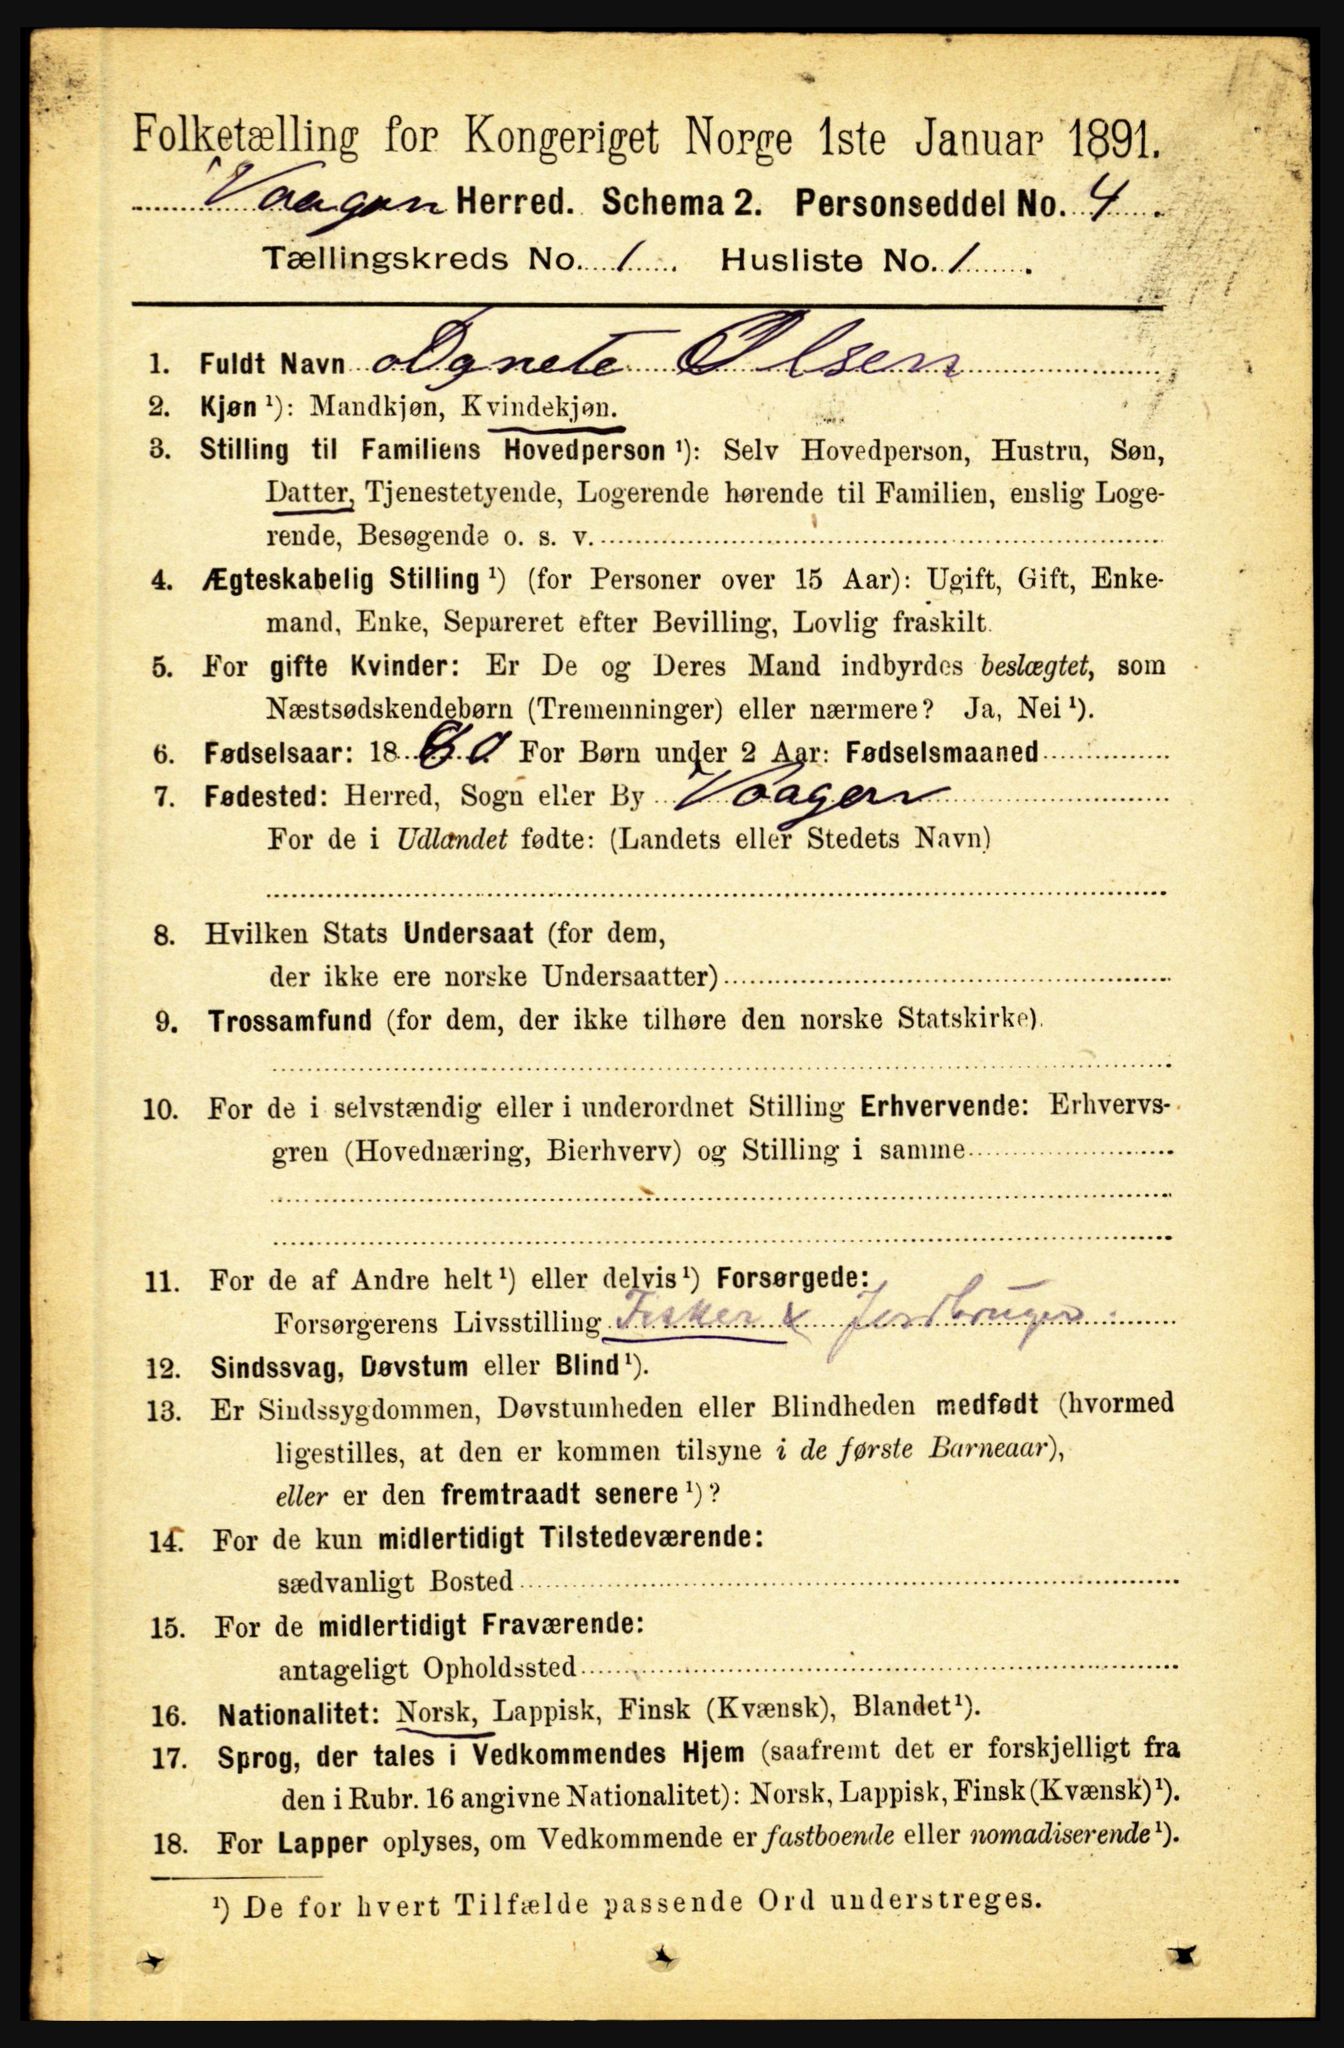 Folketælling for Kongeriget Norge 1ste Januar 1891.
Vaagan Herred. Schema 2. Personseddel No. 4.
Tællingskreds No. 1. Husliste No. 1.
1. Fuldt Navn Agnete Olsen
2. Kjøn ¹): Mandkjøn, Kvindekjøn.
3. Stilling til Familiens Hovedperson ¹): Selv Hovedperson, Hustru, Søn,
Datter, Tjenestetyende, Logerende hørende til Familien, enslig Loge-
rende, Besøgende o. s. v.
4. Ægteskabelig Stilling ¹) (for Personer over 15 Aar): Ugift, Gift, Enke-
mand, Enke, Separeret efter Bevilling, Lovlig fraskilt.
5. For gifte Kvinder: Er De og Deres Mand indbyrdes beslægtet, som
Næstsødskendebørn (Tremenninger) eller nærmere? Ja, Nei ¹).
6. Fødselsaar: 18 For Børn under 2 Aar: Fødselsmaaned
7. Fødested: Herred, Sogn eller By Vaagen
For de i Udlandet fødte: (Landets eller Stedets Navn)
8. Hvilken Stats Undersaat (for dem,
der ikke ere norske Undersaatter)
9. Trossamfund (for dem, der ikke tilhøre den norske Statskirke).
10. For de i selvstændig eller i underordnet Stilling Erhvervende: Erhvervs-
gren (Hovednæring, Bierhverv) og Stilling i samme
11. For de af Andre helt ¹) eller delvis ¹) Forsørgede:
Forsørgerens Livsstilling Fisker & Jordbruger
12. Sindssvag, Døvstum eller Blind ¹).
13. Er Sindssygdommen, Døvstumheden eller Blindheden medfødt (hvormed
ligestilles, at den er kommen tilsyne i de første Barneaar),
eller er den fremtraadt senere ¹)?
14. For de kun midlertidigt Tilstedeværende:
sædvanligt Bosted
15. For de midlertidigt Fraværende:
antageligt Opholdssted
16. Nationalitet: Norsk, Lappisk, Finsk (Kvænsk), Blandet ¹).
17. Sprog, der tales i Vedkommendes Hjem (saafremt det er forskjelligt fra
den i Rubr. 16 angivne Nationalitet): Norsk, Lappisk, Finsk (Kvænsk) ¹).
18. For Lapper oplyses, om Vedkommende er fastboende eller nomadiserende ¹).
¹) De for hvert Tilfælde passende Ord understreges.